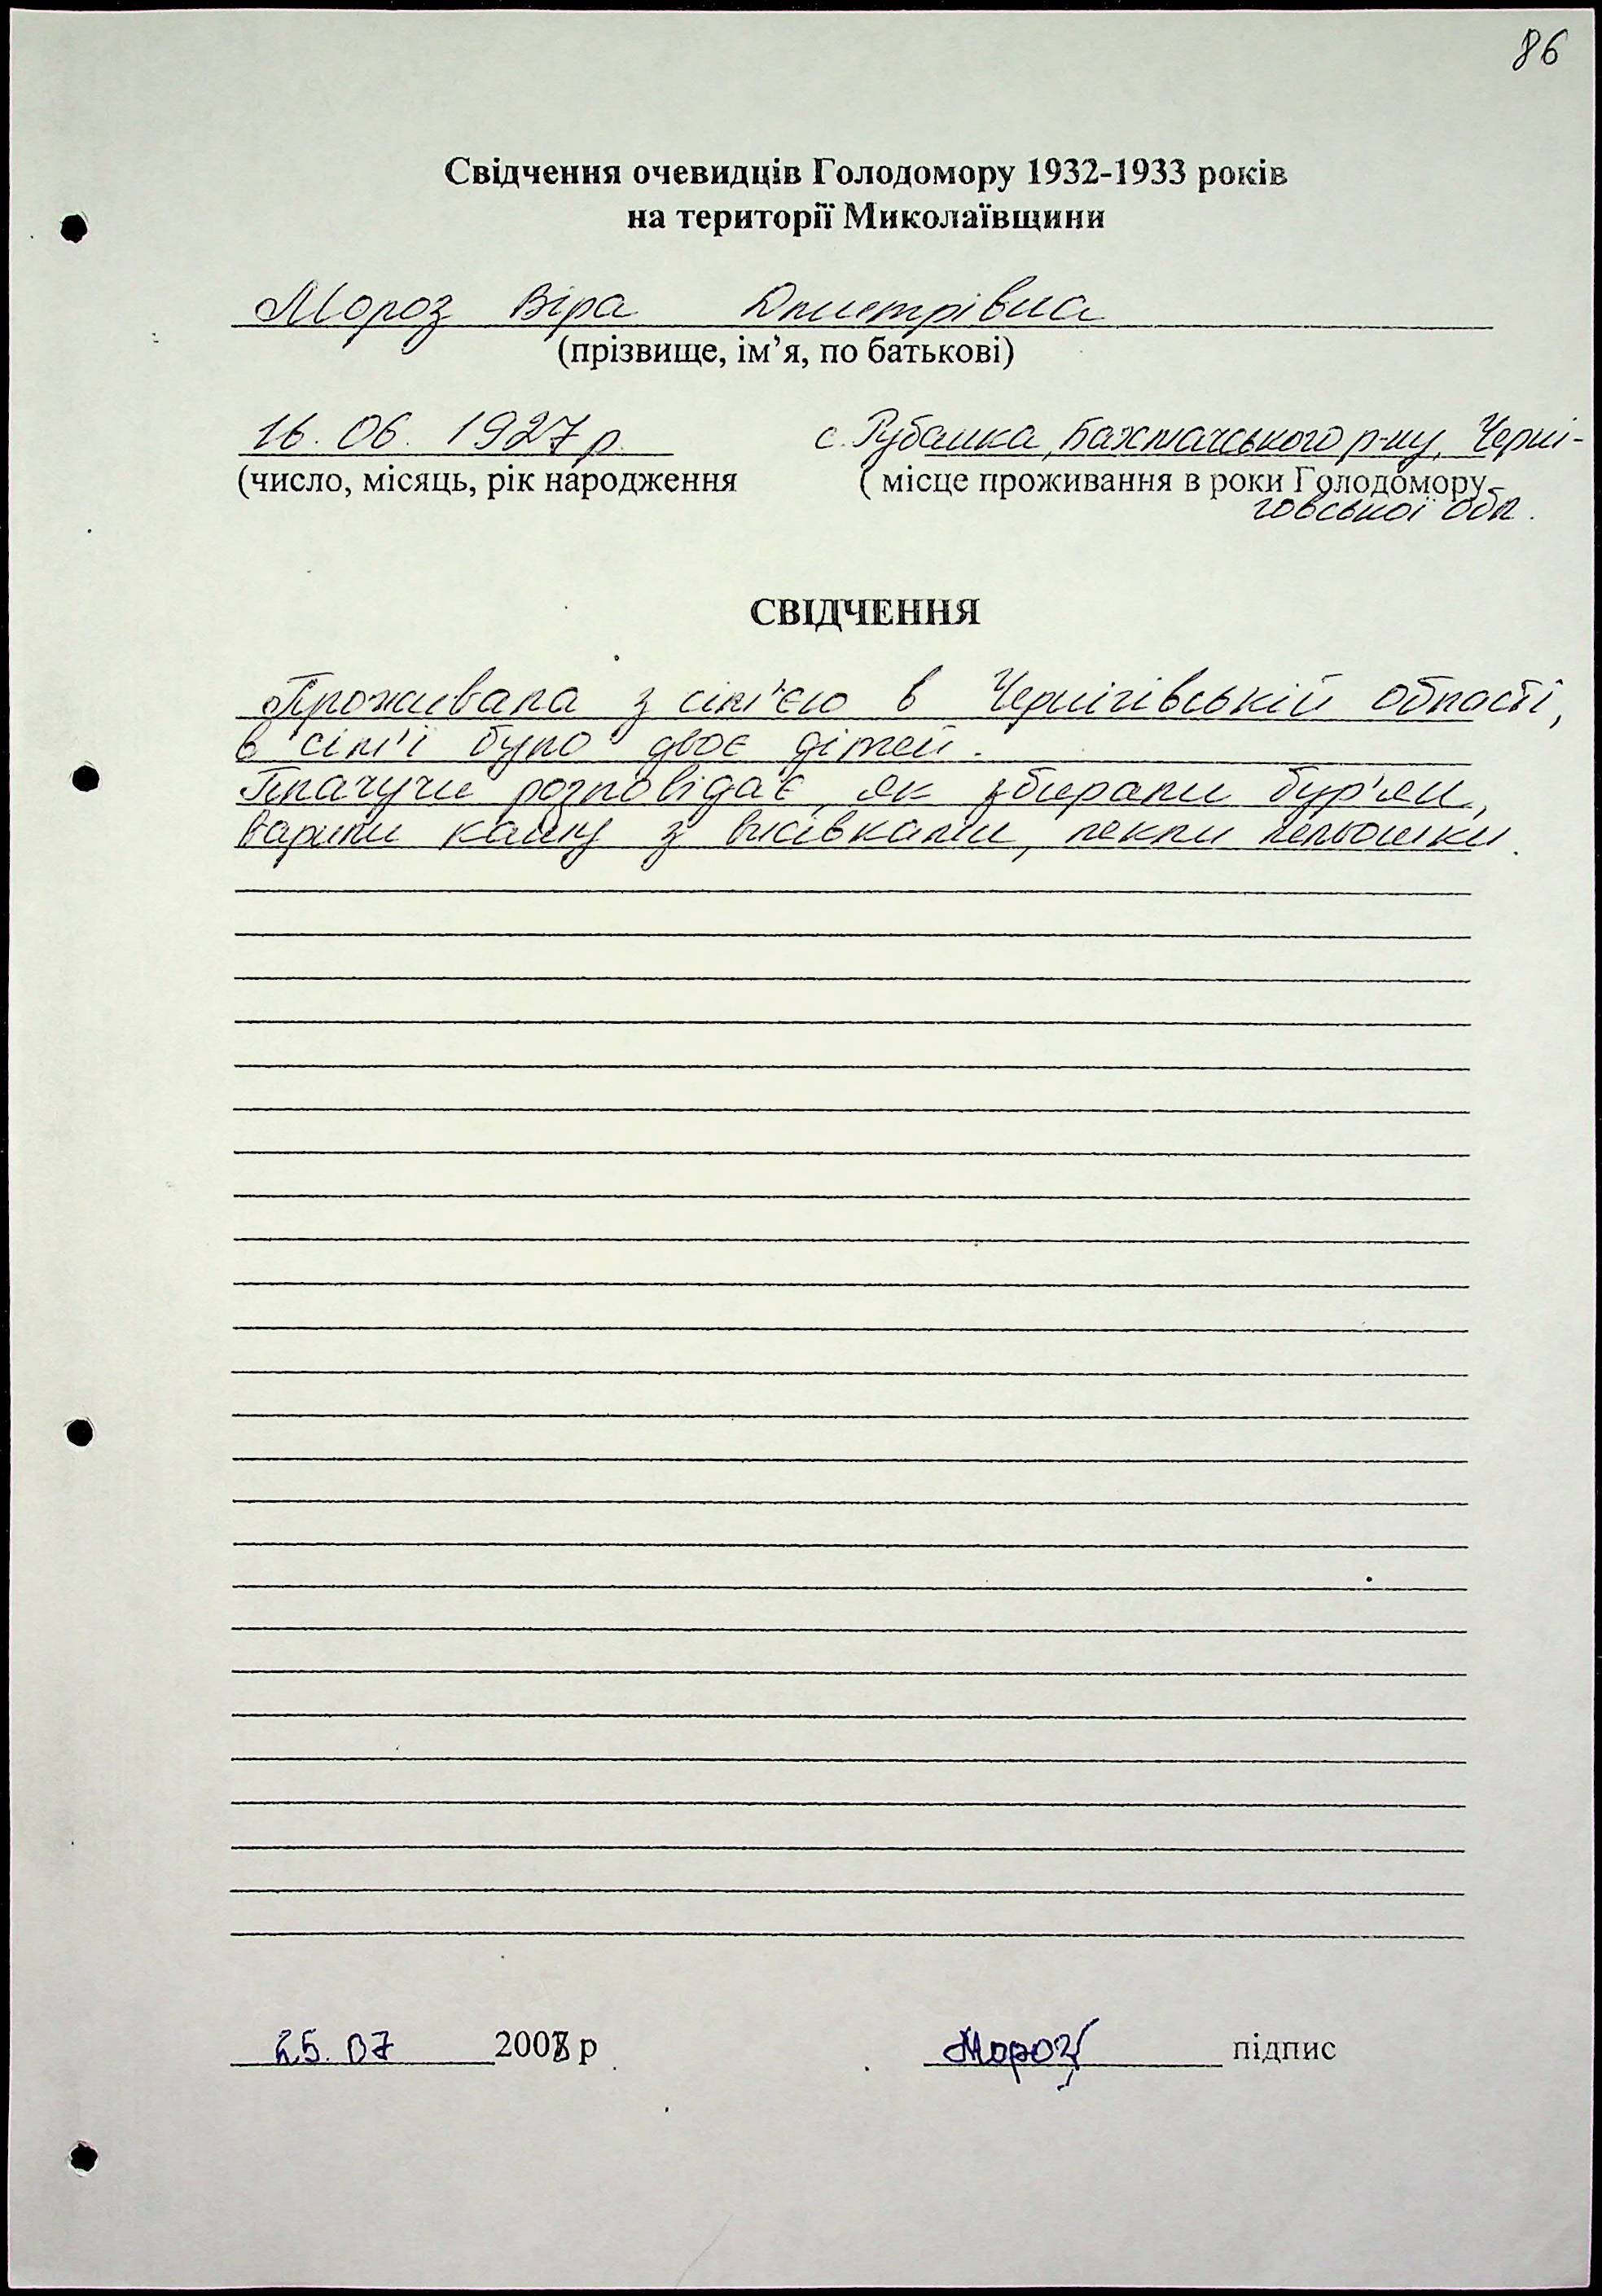 86
Свідчення очевидців Голодомору 1932-1933 років
на території Миколаївщини
Мороз Віра Дмитрівна
(прізвище, ім’я, по батькові)
16. 06. 1927 р. с. Рубанка, Бахмачського р-ну, Черні-
(число, місяць, рік народження ( місце проживання в роки Голодомору
говської обл.
СВІДЧЕННЯ
Проживала з сім'єю в Чернігівській області,
в сім'ї було двоє дітей.
Плачучи розповідає, як збирали бур'ян,
варили кашу з висівками, пекли льпошки.
25. 07 2008 р. Мороз підпис